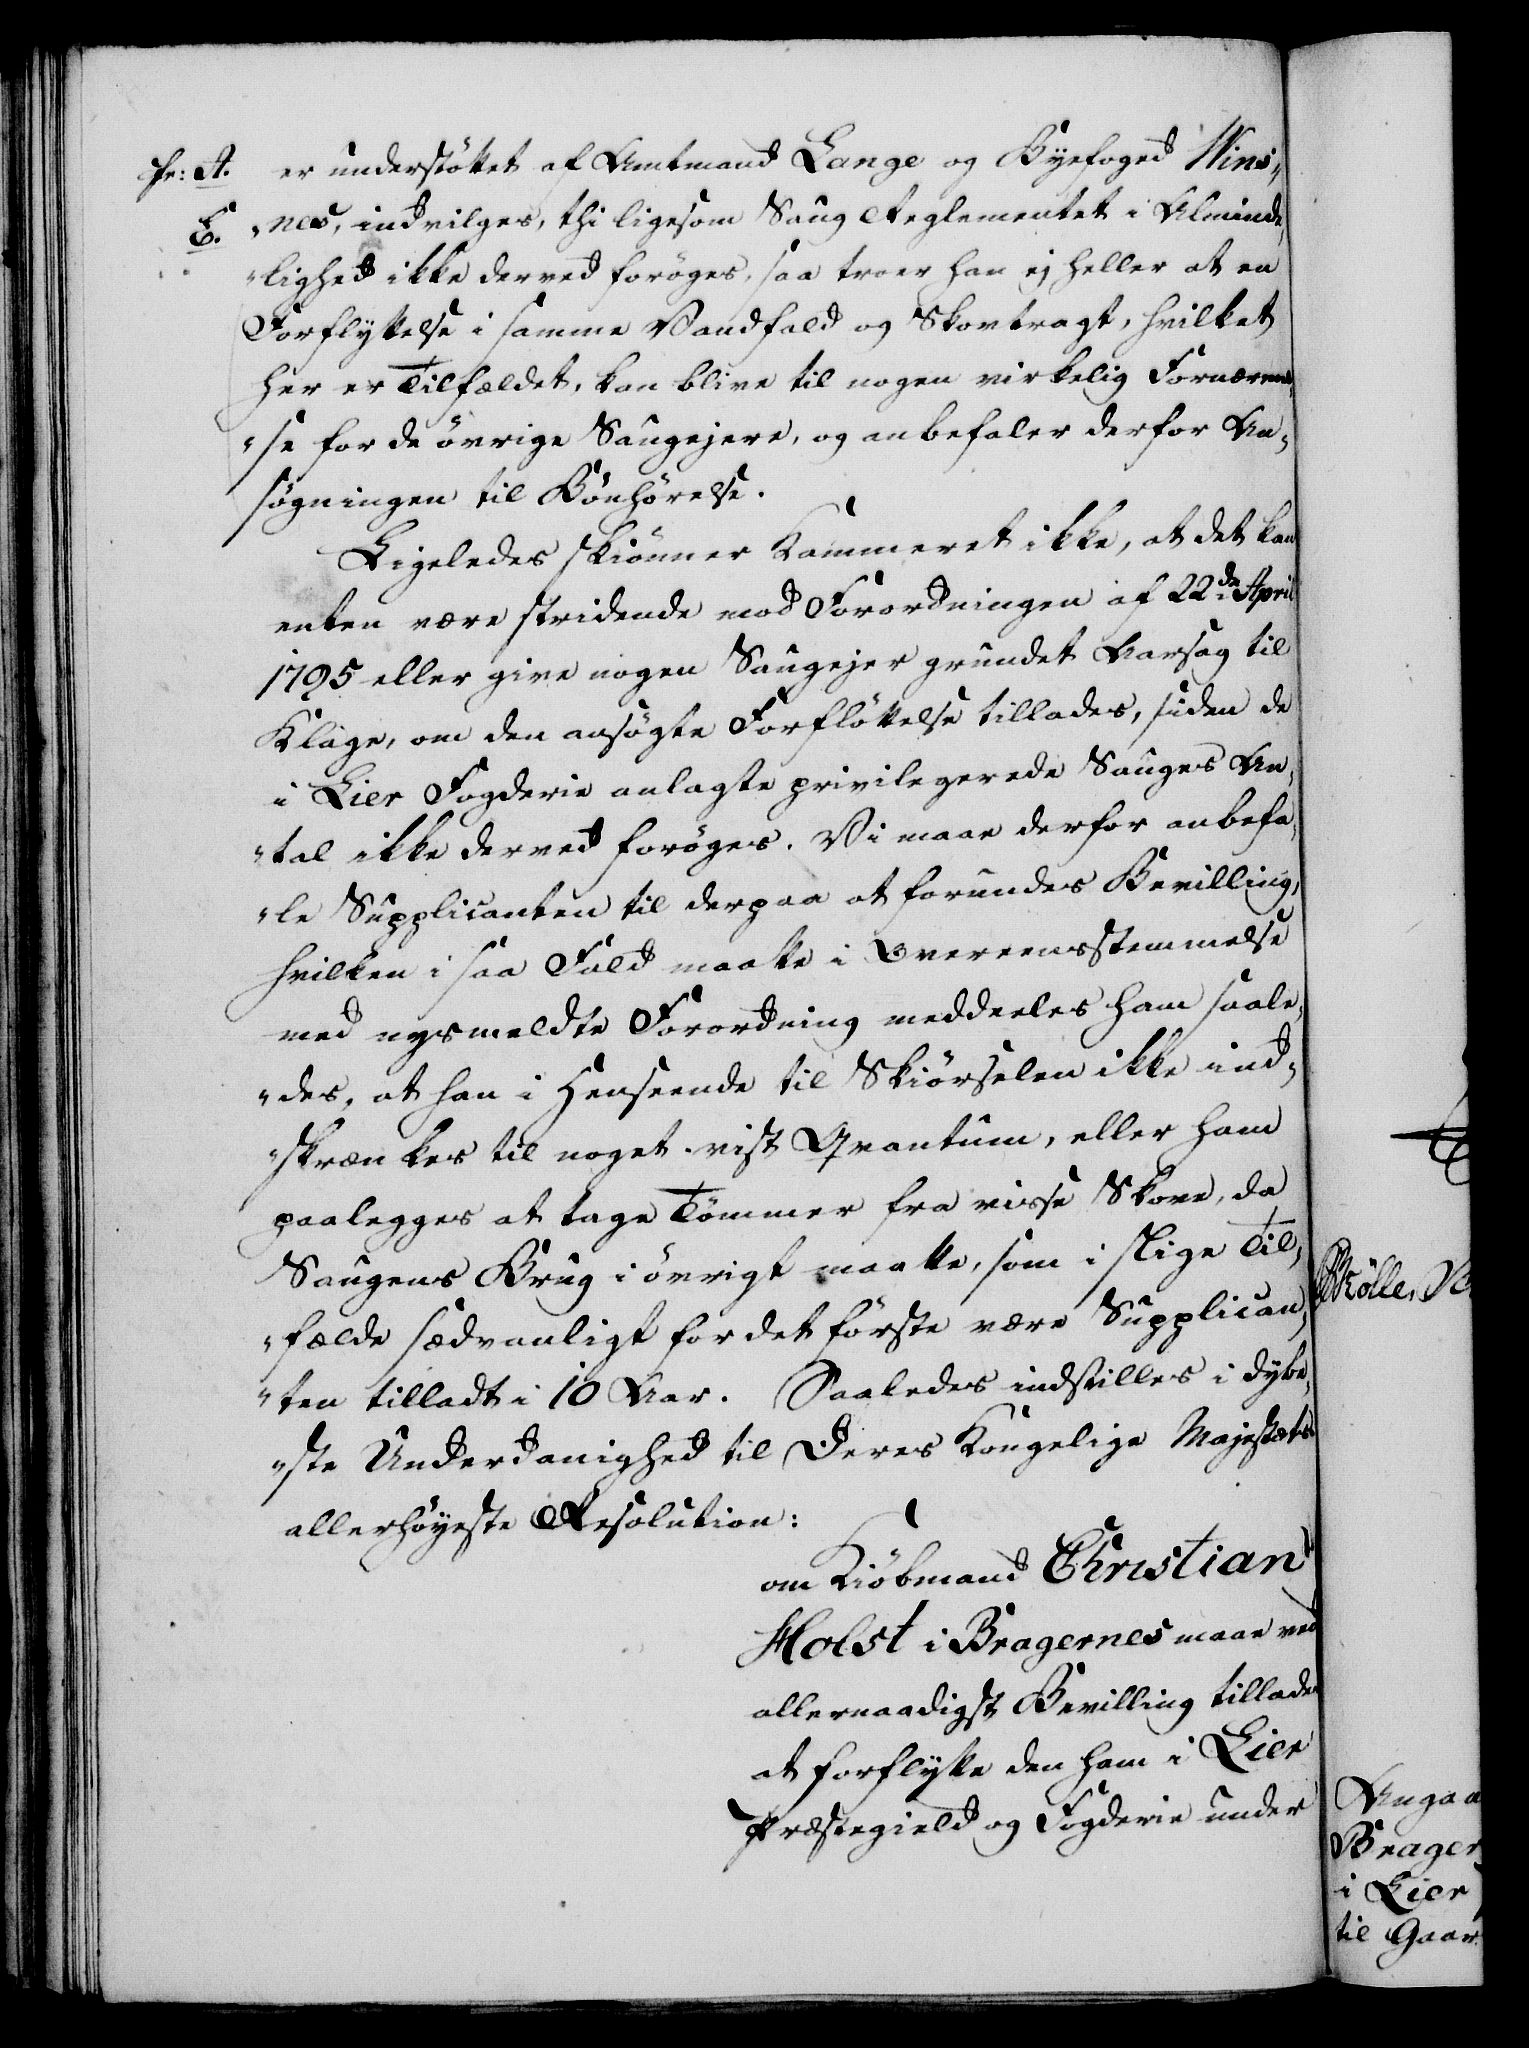 fr: A. er understöttet af Amtmand Lange og Byefoged Wins„
E. „nes, indvilges, thi ligesom Saug Reglementet i Alminde„
„lighed ikke derved forøges, saa troer han ej heller at en
Forflyttelse i samme Vandfald og Skovtragt, hvilket
her er Tilfældet, kan blive til nogen virkelig Fornærmel„
„se for de övrige Saugejere, og anbefaler derfor An„
søgningen til Bönhörelse.
Ligeledes skiönner Kammeret ikke, at det kan
enten være stridende mod Forordningen af 22de April
1795 eller give nogen Saugejer grundet Aarsag til
Klage, om den ansøgte Forflöttelse tillades, siden de
i Lier Fogderie anlagte privilegerede Sauges An„
„tal ikke derved forøges. Vi maae derfor anbefa„
„le Supplicanten til derpaa at forundes Bevilling,
hvilken i saa Fald maatte i Overeensstemmelse
med nysmeldte Forordning meddeeles ham saale„
„des, at han i Henseende til Skiörselen ikke ind„
„skrænkes til noget vist Qvantum, eller ham
paalegges at tage Tömmer fra visse Skove, da
Saugens Brug i övrigt maatte, som i slige Til„
„fælde sædvanligt for det förste være Supplican„
„ten tilladt i 10 Aar. Saaledes indstilles i dybe„
„ste Underdanighed til Deres Kongelige Majestæts
allerhöyeste Resolution:
om Kiöbmand Christian
Holst i Bragernes maae ved
allernaadigst Bevilling tillades
at forflytte den ham i Lier
Præstegield og Fogderie under
Mölle,
Angaa
Brager
i Lier
til Gaar